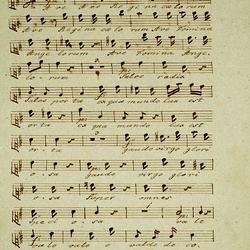 Ave Regina cœlorum
Ave Regina cœlorum Ave Domina
Angelorum Ave Domina Ange
lorum Salve radix
Salve porta ex qua mundo lux est
orta ex qua mundo lux est
orta Gaude virgo glori
osa gaude virgo glori
osa super omnes
speciosa vale
vale vale o valde deco